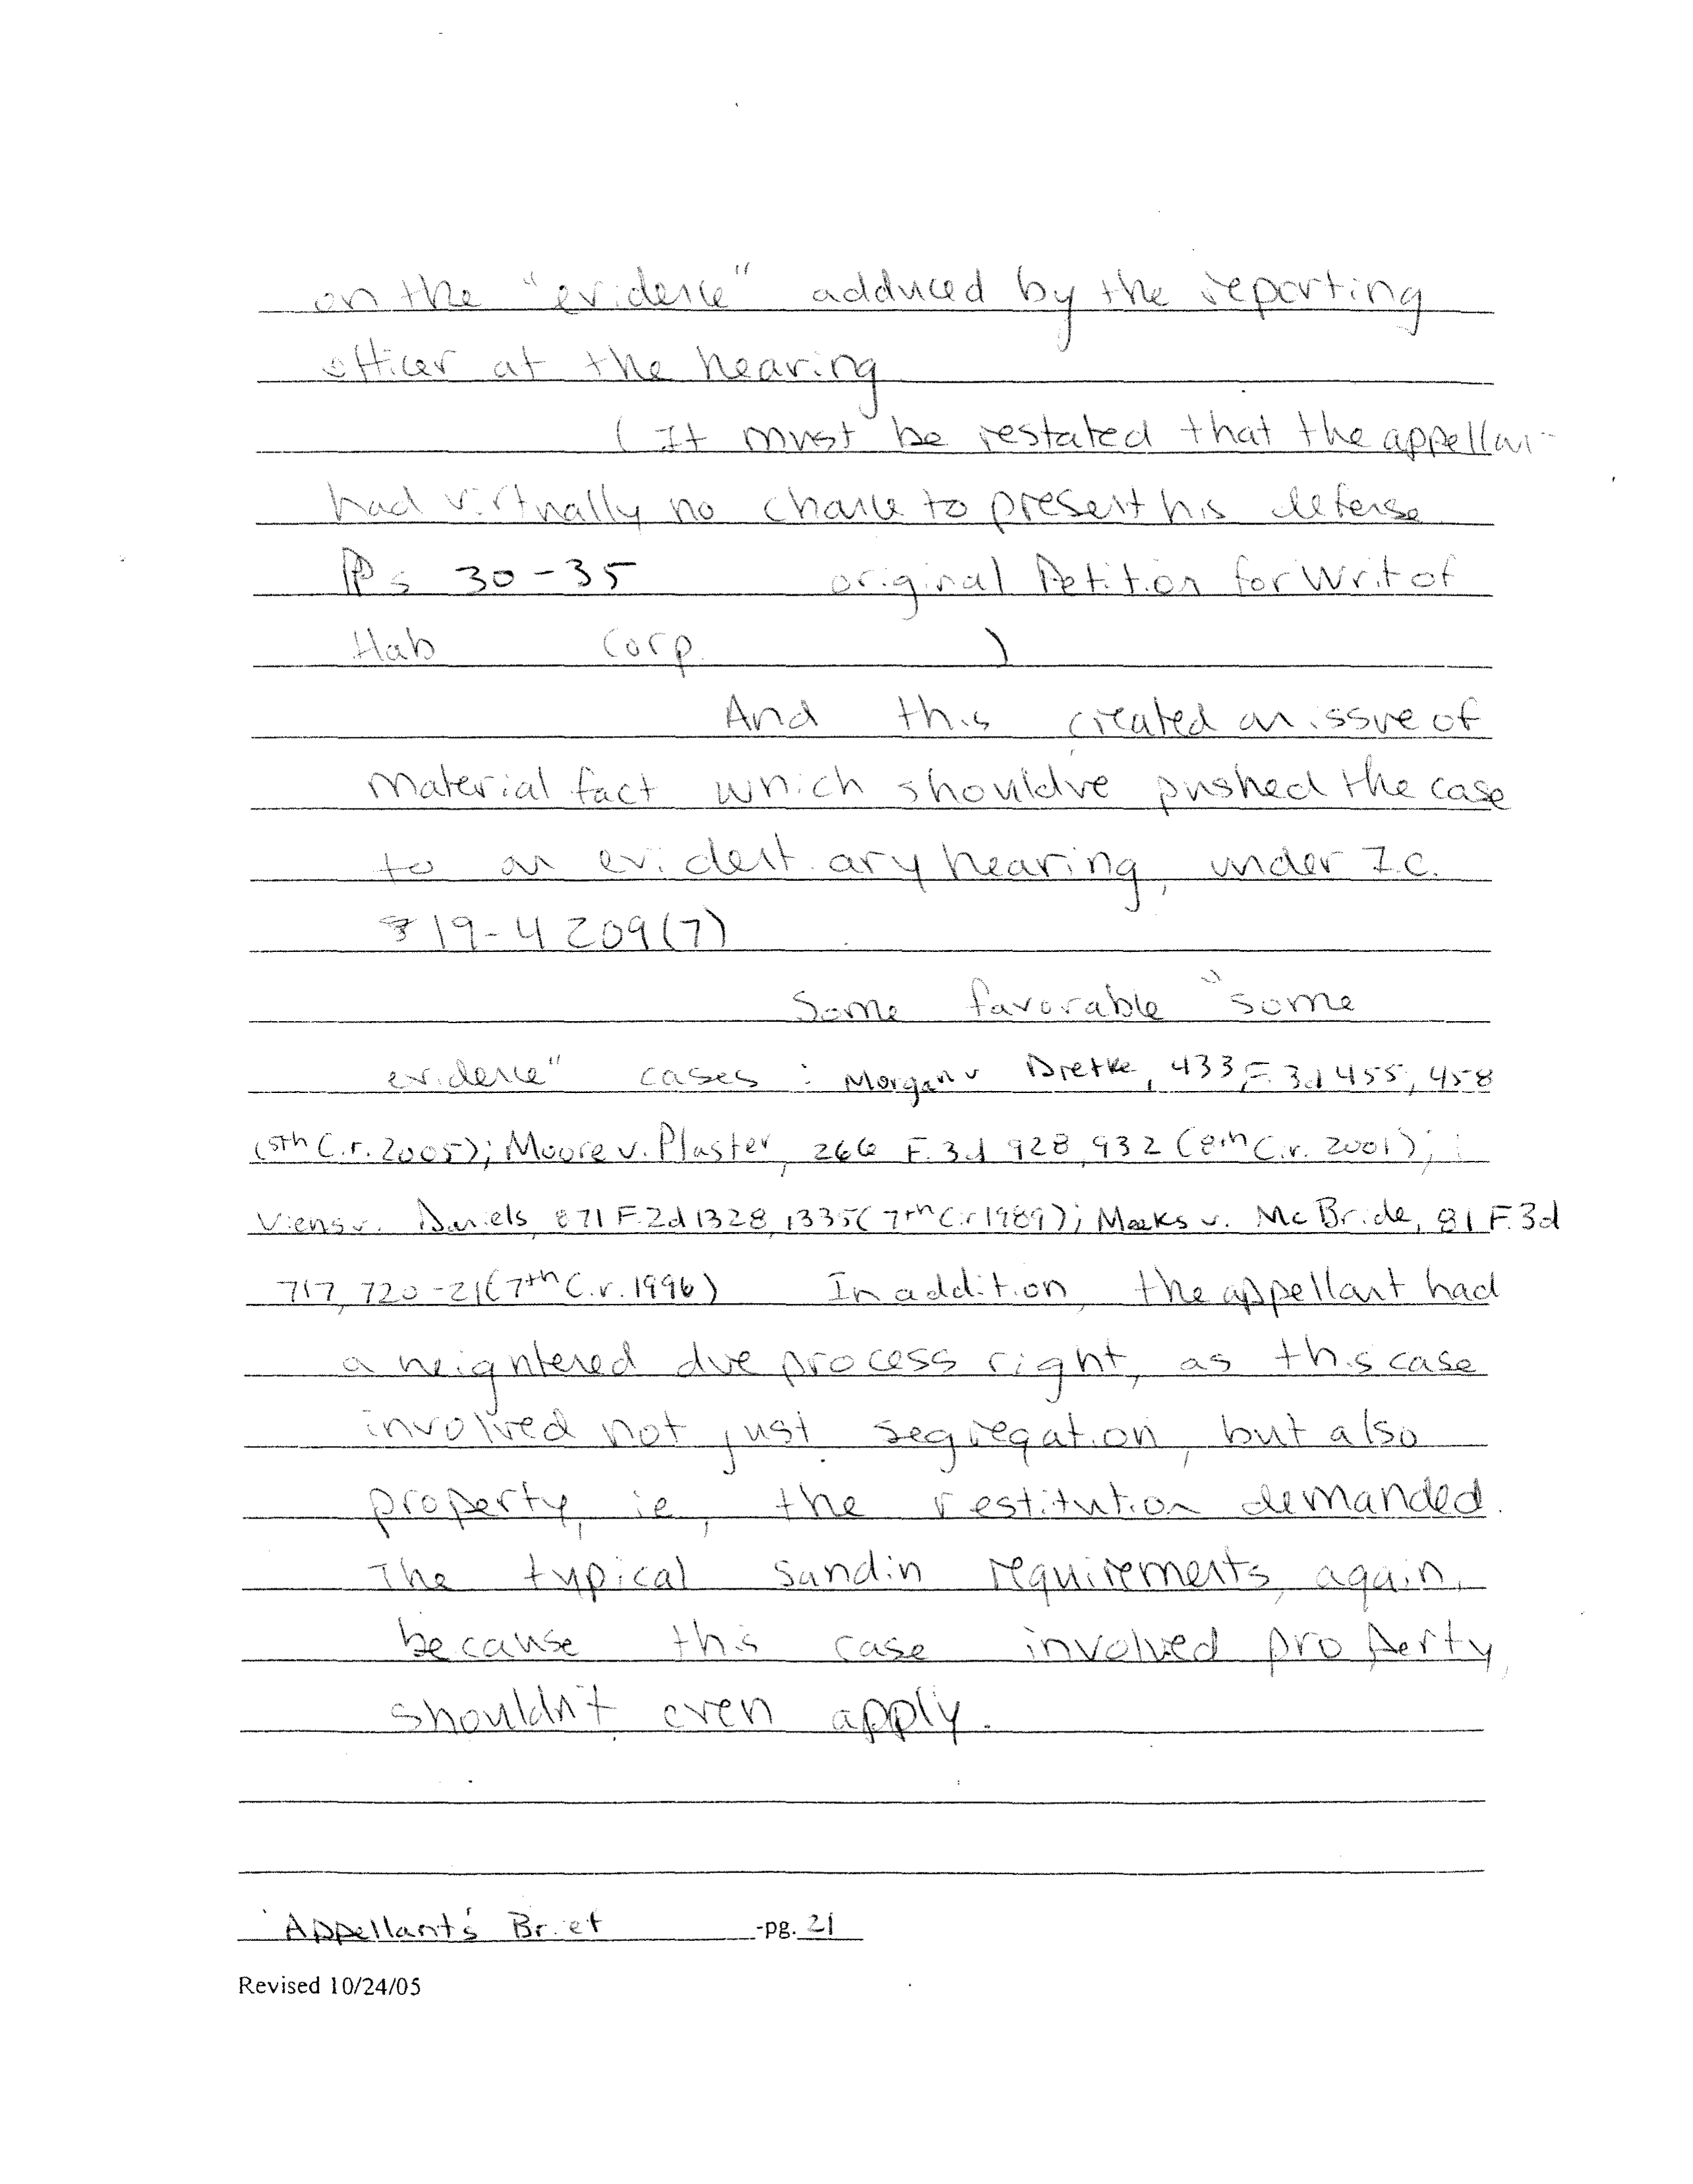 on the "evidence" adduced by the reporting
officer at the hearing
(It must be restated that the
had virtually no chance to present his defense
PPs 30-35 original Petition for Writ of
Hab Corp. )
And this created an issue of
material fact which should've pushed the case
to an evidentiary hearing, under I.C.
§ 19-4209(7)
Some favorable "some
evidence" cases : Morgan v Dretke, 433 F.3d 455, 458
(5th Cir. 2005); Moore v. Plaster, 266 F.3d 928, 932 (8th Cir. 2001);
Viens v. Daniels, 871 F.2d 1328, 1335 (7th Cir 1989); Meeks v. McBride, 81 F.3d
717, 720-21 (7th Cir. 1996) In addition, the appellant had
a heightered due process right, as this case
involved not just segregation, but also
property, ie, the restitution demanded.
The typical Sandin requirements, again,
because this case involved property,
shouldn't even apply.
Appellant's Brief -pg. 21
Revised 10/24/05